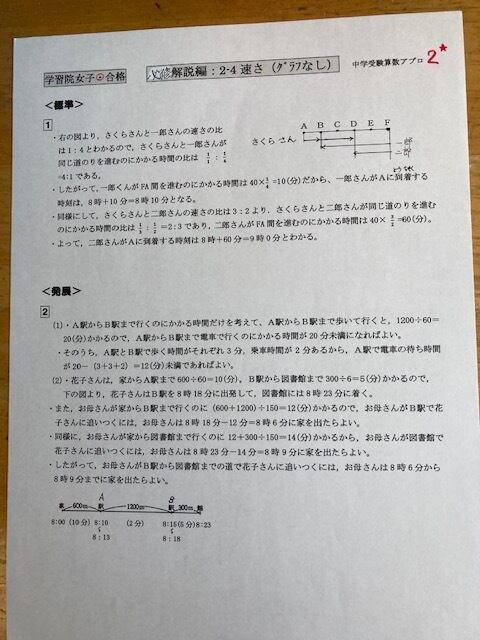 学習院女子◎合格
必修解説編：2-4 速さ（グラフなし）
中学受験算数アプロ
2*
＜標準＞
1
・右の図より，さくらさんと一郎さんの速さの比
は1：4とわかるので，さくらさんと一郎さんが
同じ道のりを進むのにかかる時間の比は 1/1：1/4
=4:1である。
A B C D E F
さくら さん
一郎
二郎
・したがって，一郎くんがFA間を進むのにかかる時間は40×1/4=10(分)だから，一郎さんがAに到着する
時刻は，8時＋10分＝8時10分となる。
・同様にして，さくらさんと二郎さんの速さの比は3：2より，さくらさんと二郎さんが同じ道のりを進む
のにかかる時間の比は 1/3：1/2=2:3であり，二郎さんがFA間を進むのにかかる時間は40×3/2=60(分)。
・よって，二郎さんがAに到着する時刻は8時＋60分＝9時0分とわかる。
＜発展＞
2
(1)・A駅からB駅まで行くのにかかる時間だけを考えて，A駅からB駅まで歩いて行くと，1200÷60＝
20(分)かかるので，A駅からB駅まで電車で行くのにかかる時間が20分未満になればよい。
・そのうち，A駅とB駅で歩く時間がそれぞれ3分，乗車時間が2分あるから，A駅で電車の待ち時間
が20－(3+3+2)＝12(分)未満であればよい。
(2)・花子さんは，家からA駅まで600÷60＝10(分)，B駅から図書館まで300÷6＝5(分)かかるので，
下の図より，花子さんはB駅を8時18分に出発して，図書館には8時23分に着く。
・また，お母さんが家からB駅まで行くのに(600+1200)÷150＝12(分)かかるので，お母さんがB駅で花
子さんに追いつくには，お母さんは8時18分－12分＝8時6分に家を出たらよい。
・同様に，お母さんが家から図書館まで行くのに12＋300÷150＝14(分)かかるから，お母さんが図書館で
花子さんに追いつくには，お母さんは8時23分－14分＝8時9分に家を出たらよい。
・したがって，お母さんがB駅から図書館までの道で花子さんに追いつくには，お母さんは8時6分から
8時9分までに家を出たらよい。
A B
家 600m 駅 1200m 駅 300m 館
8:00 (10分) 8:10 (2分) 8:15(5分)8:23
8:13 8:18